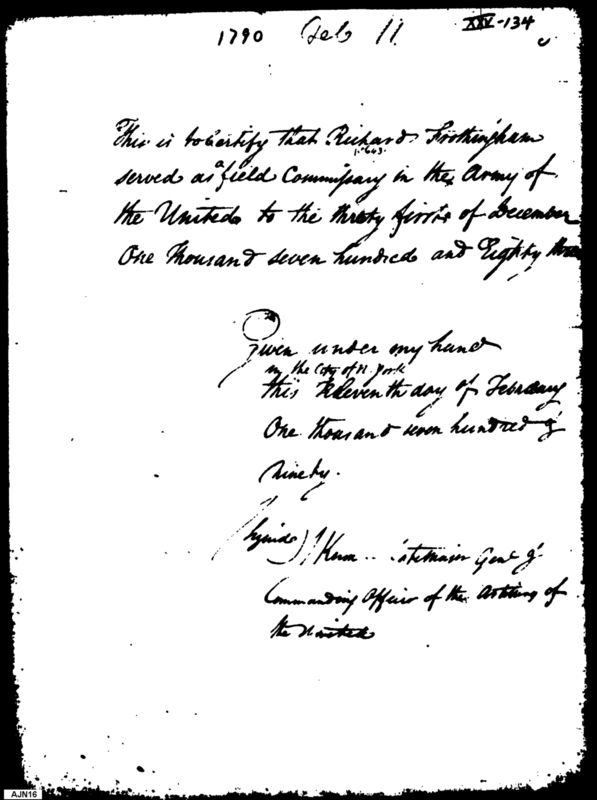 1790 Feb 11
XXV-134
This is to Certify that Richard Frothingham
served as a field Commissary in the Army of
the United to the thirty first of December
One thousand seven hundred and Eighty three
Given under my hand
in the City of N. York
this Eleventh day of February
One thousand seven hundred &
Ninety.
(Signed) H Knox late Major Genl &
Commanding Officer of the Artillery of
the United
AJN16